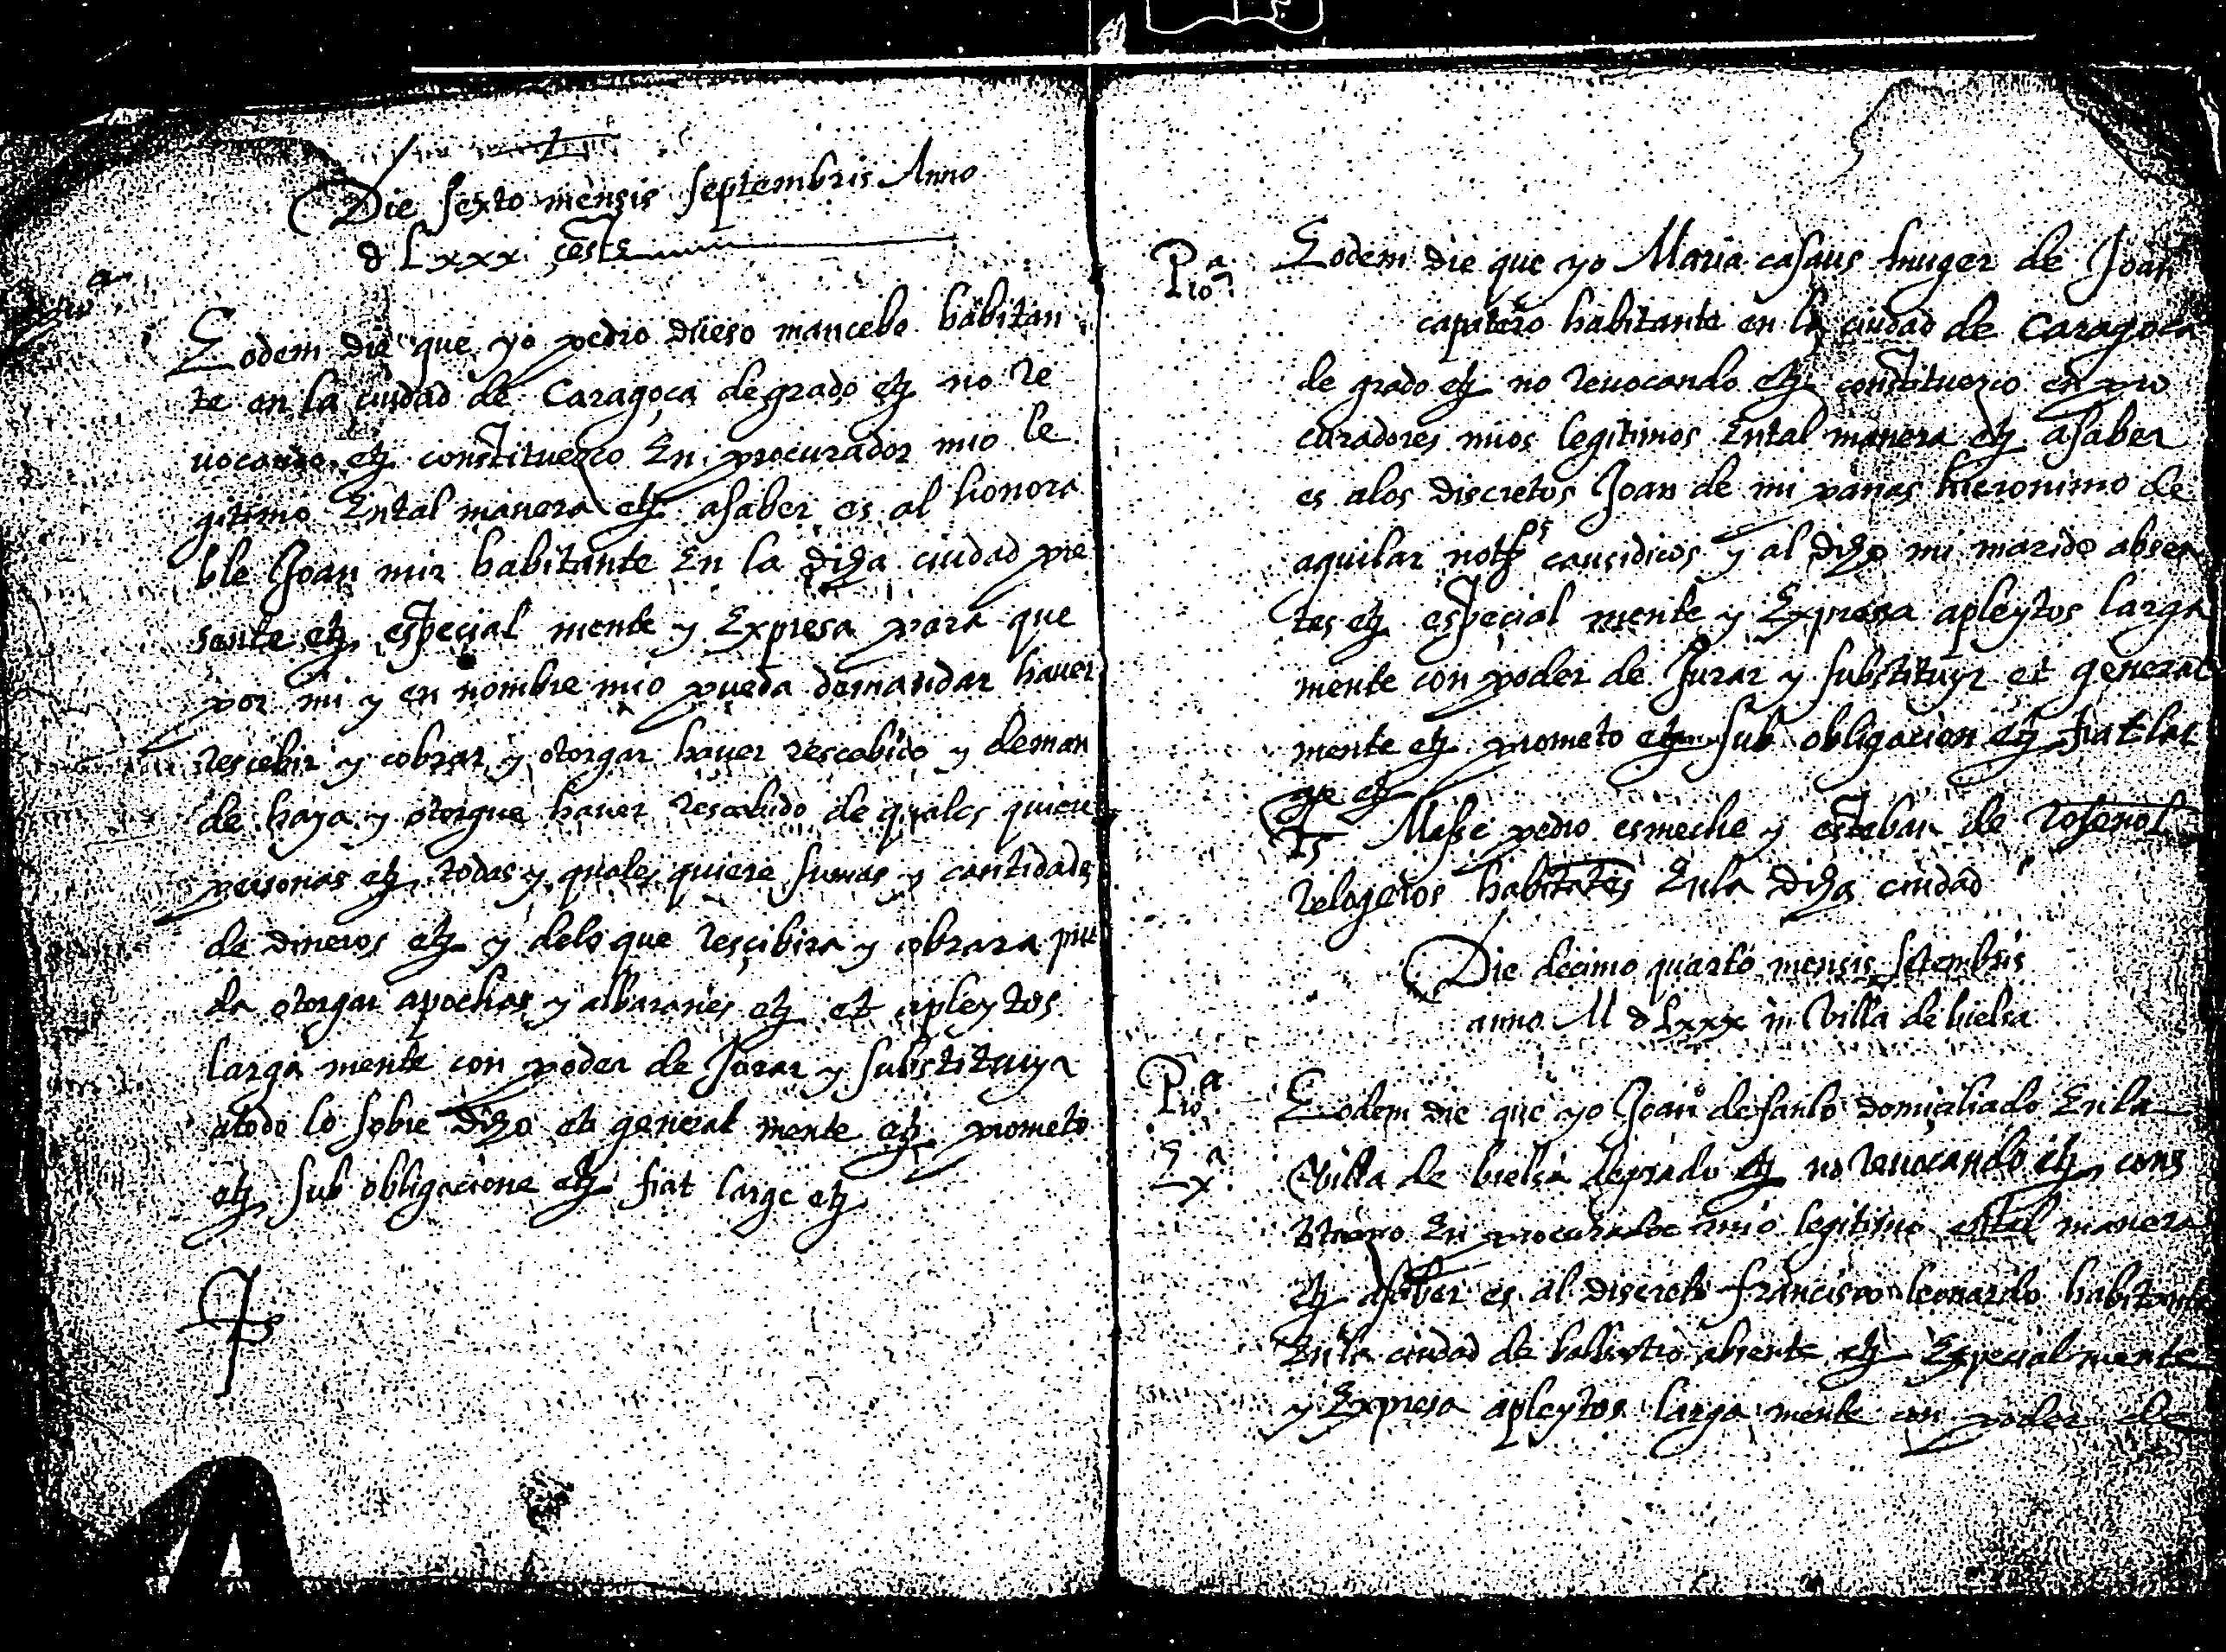 Die sexto mensis septembris Anno
d Lxxx
Eodem die que yo pedro dueso mancebo habitan
te en la ciudad de Caragoça de grado etz no re
uocando etz constituezco En procurador mio le
gitimo Ental manera etz asaber es al honora
ble Joan mir habitante En la diha ciudad pre
sente etz especial mente y Expresa para que
por mi y en nombre mio pueda demandar hauer
rescebir y cobrar y otorgar hauer rescebido y deman
de haya y otorgue hauer rescebido de quales quiere
personas etz todas y quales quiere sumas y cantidades
de dineros etz y delo que rescibira y cobrara pue
da otorgar apochas y albaranes etz et apleytos
larga mente con poder de Jurar y substituyr
atodo lo sobre diho et general mente etz prometo
etz sub obligacione etz fiat large etz
Ts
Pro^n a Eodem die que yo Maria casaus muger de Joan
capatero habitante en la ciudad de Caragoca
de grado etz no reuocando etz constituezco en pro
curadores mios legitimos Ental manera etz asaber
es alos discretos Joan de mi panas hieronimo de
aquilar not^os causidicos y al diho mi marido absen
tes etz especial mente y Expresa apleytos larga
mente con poder de Jurar y substituyr et general
mente etz prometo etz sub obligacion etz fiat lar
ge etz
Ts Masse pedro esmeche y esteban de rosenol
relogeros habitātes Enla diha ciudad
Die decimo quarto mensis setembris
anno M d Lxxx in Villa de bielsa
Pro^n a Eodem die que yo Joan de sanlo domiciliado Enla
Ex^a Villa de bielsa degrado etz no reuocando etz cons
tituezco En procurador mio legitimo ental manera
etz asaber es al discreto francisco leonardo habitante
Enla ciudad de balbastro absente etz Especialmente
y Expresa apleytos larga mente con poder de